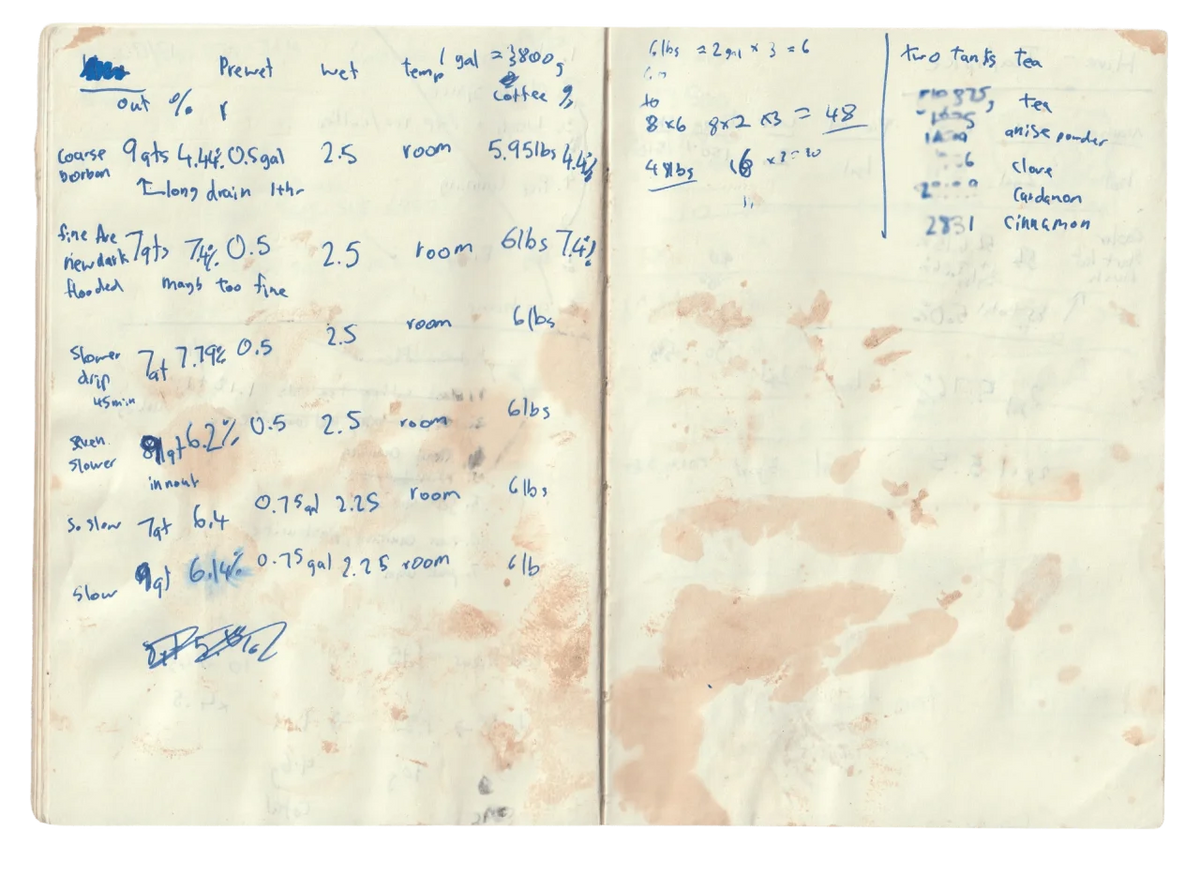 Prewet wet temp 1 gal = 3800g
out % coffee %
coarse 9qts 4.44% 0.5gal 2.5 room 5.95lbs 4.4%
bourbon
long drain 1+hr
fine
new dark 7qts 7.4% 0.5 2.5 room 6lbs 7.4%
flooded mayb too fine
slower 7qt 7.79% 0.5 2.5 room 6lbs
drip
45min
even 9qt 6.2% 0.5 2.5 room 6lbs
slower
in nout
So slow 7qt 6.4 0.75gal 2.25 room 6lbs
slow 9qt 6.14% 0.75gal 2.25 room 6lb
6lbs = 2gal x 3 = 6
to
8x6 8x2 x3 = 48
48lbs
two tanks tea
tea
anise powder
clove
Cardamon
2831 Cinnamon